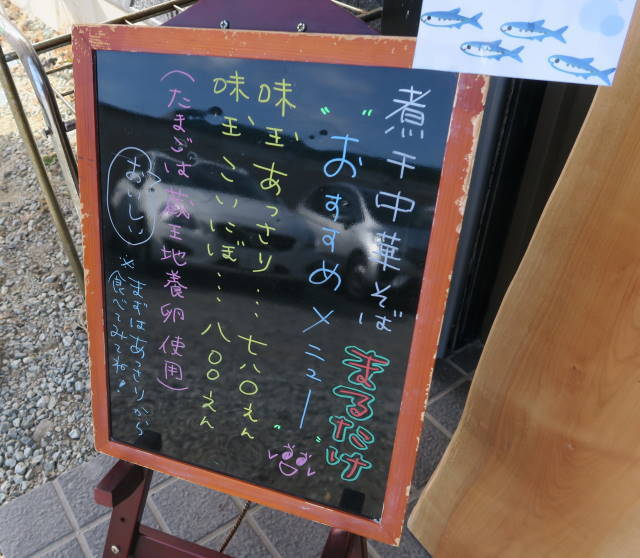 煮干中華そば まるたけ
〝おすすめメニュー〟
味玉あっさり…七八〇えん
味玉こいにぼ…八〇〇えん
(たまごは蔵王地養卵使用)
おいしい
※まずはあっさりから
食べてみてね!